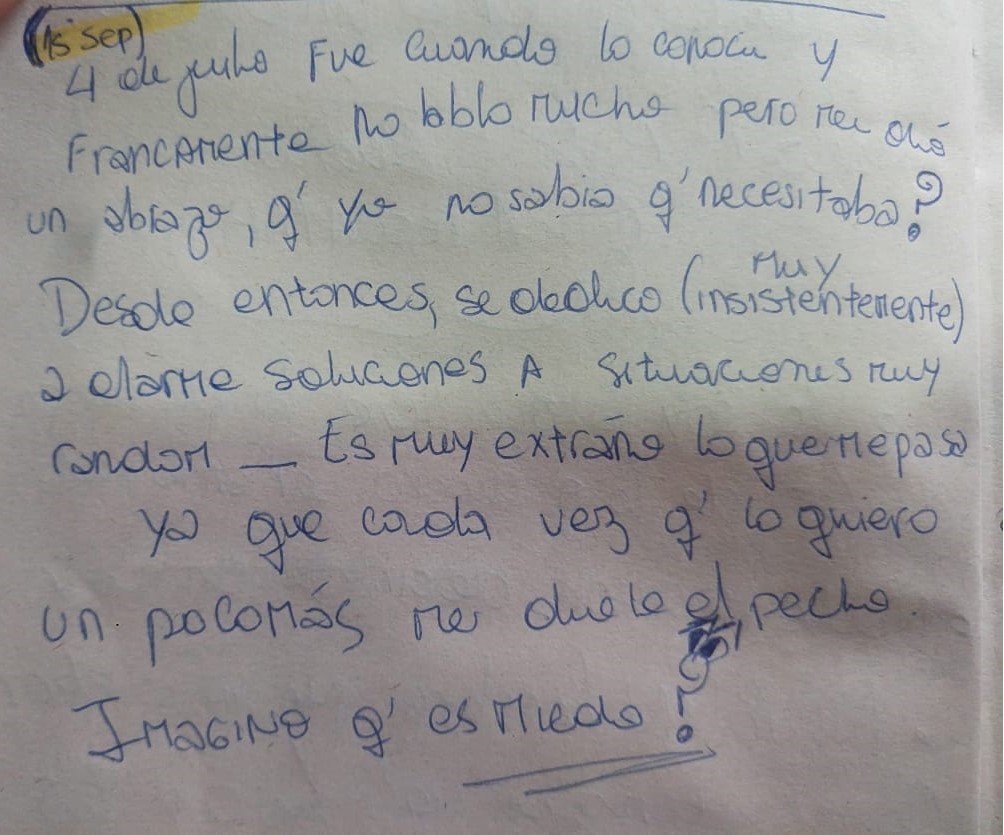 (15 sep)
4 de julio Fue cuando lo conocí y
Francamente no hablo mucho pero me dió
un abrazo, q' yo no sabía q' necesitaba?
Desde entonces, se dedico (muy insistentemente)
a darme soluciones A situaciones muy
random — Es muy extraño lo que me pasa
ya que cada vez q' lo quiero
un poco más me duele el pecho.
Imagino q' es miedo?